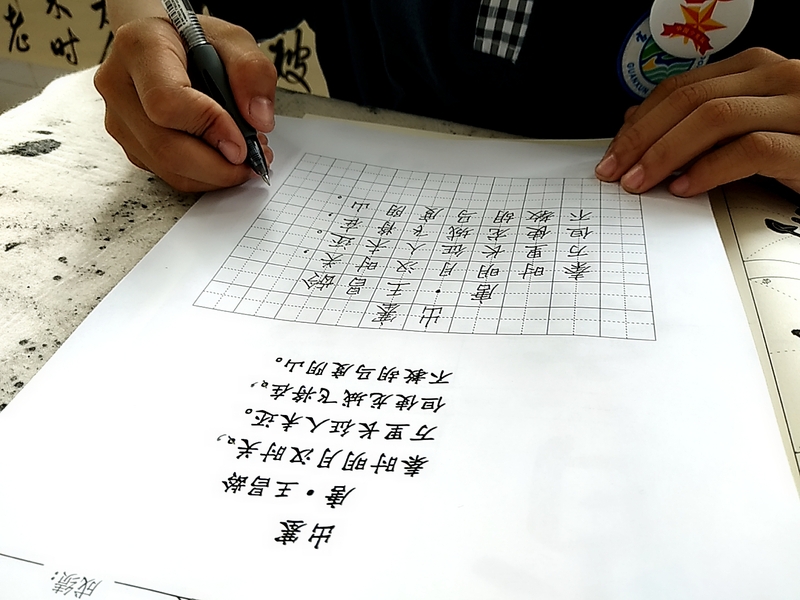 成绩:
出塞
唐·王昌龄
秦时明月汉时关,
万里长征人未还。
但使龙城飞将在,
不教胡马度阴山。
出塞
唐·王昌龄
秦时明月汉时关,
万里长征人未还。
但使龙城飞将在,
不教胡马度阴山。